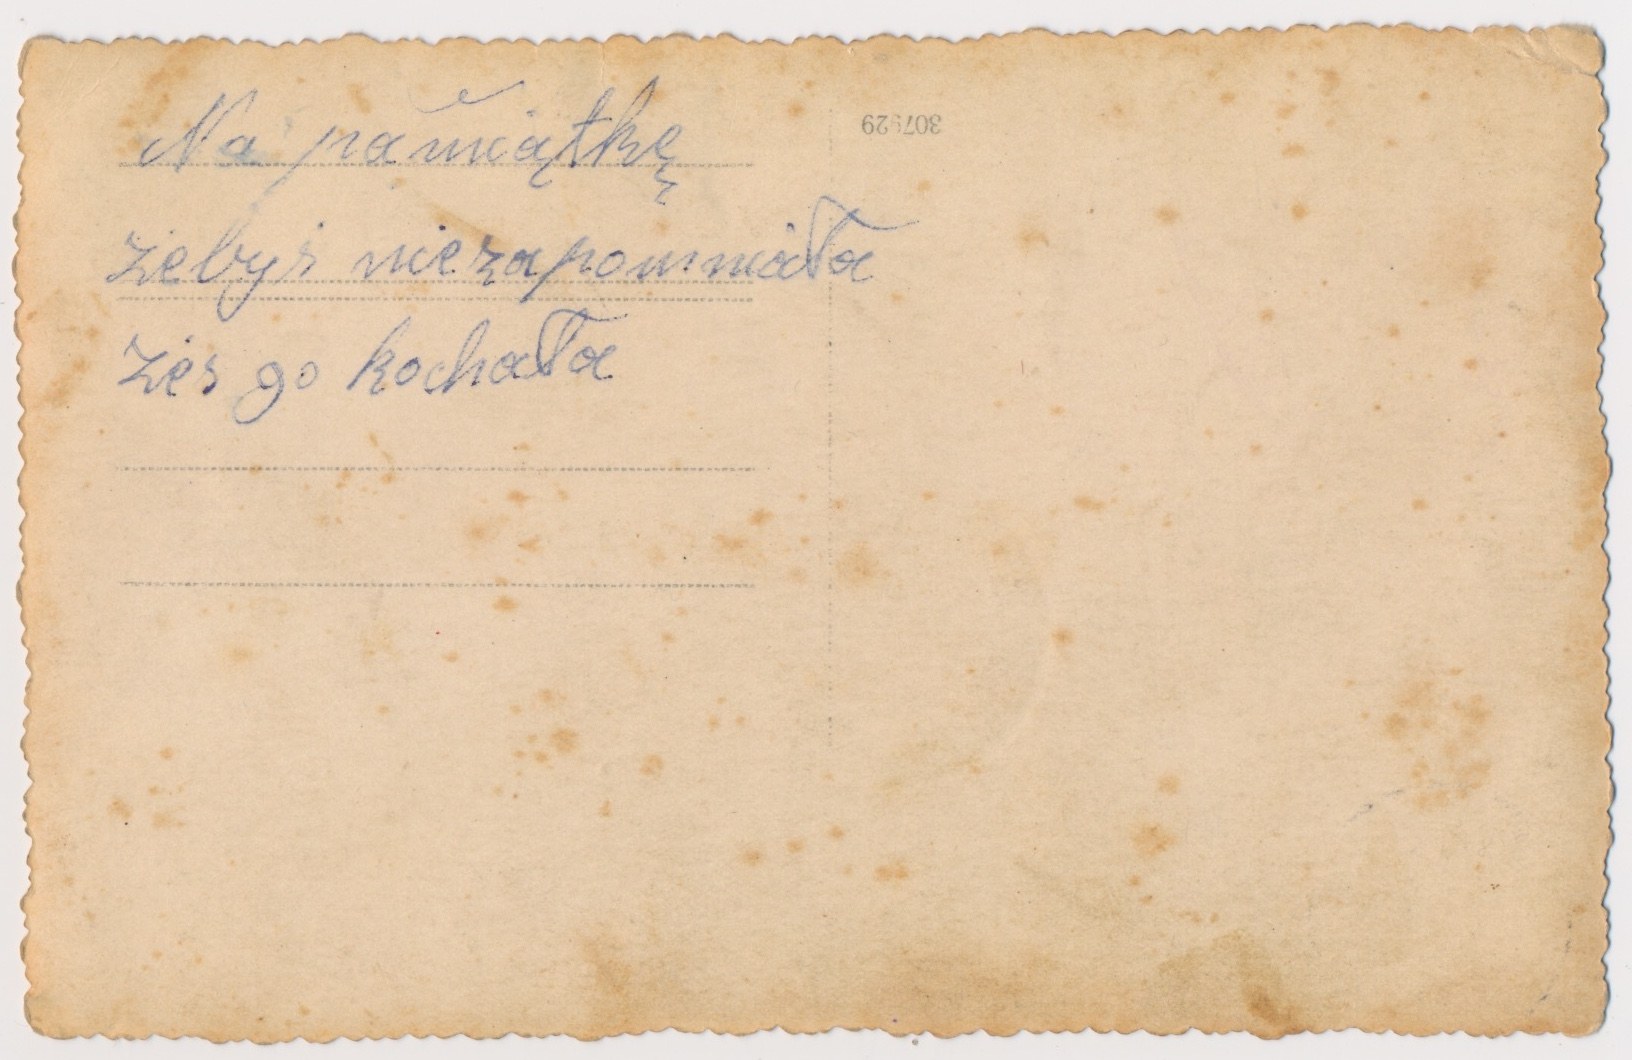 Na pamiątkę
żebyś niezapomniała
żeś go kochała